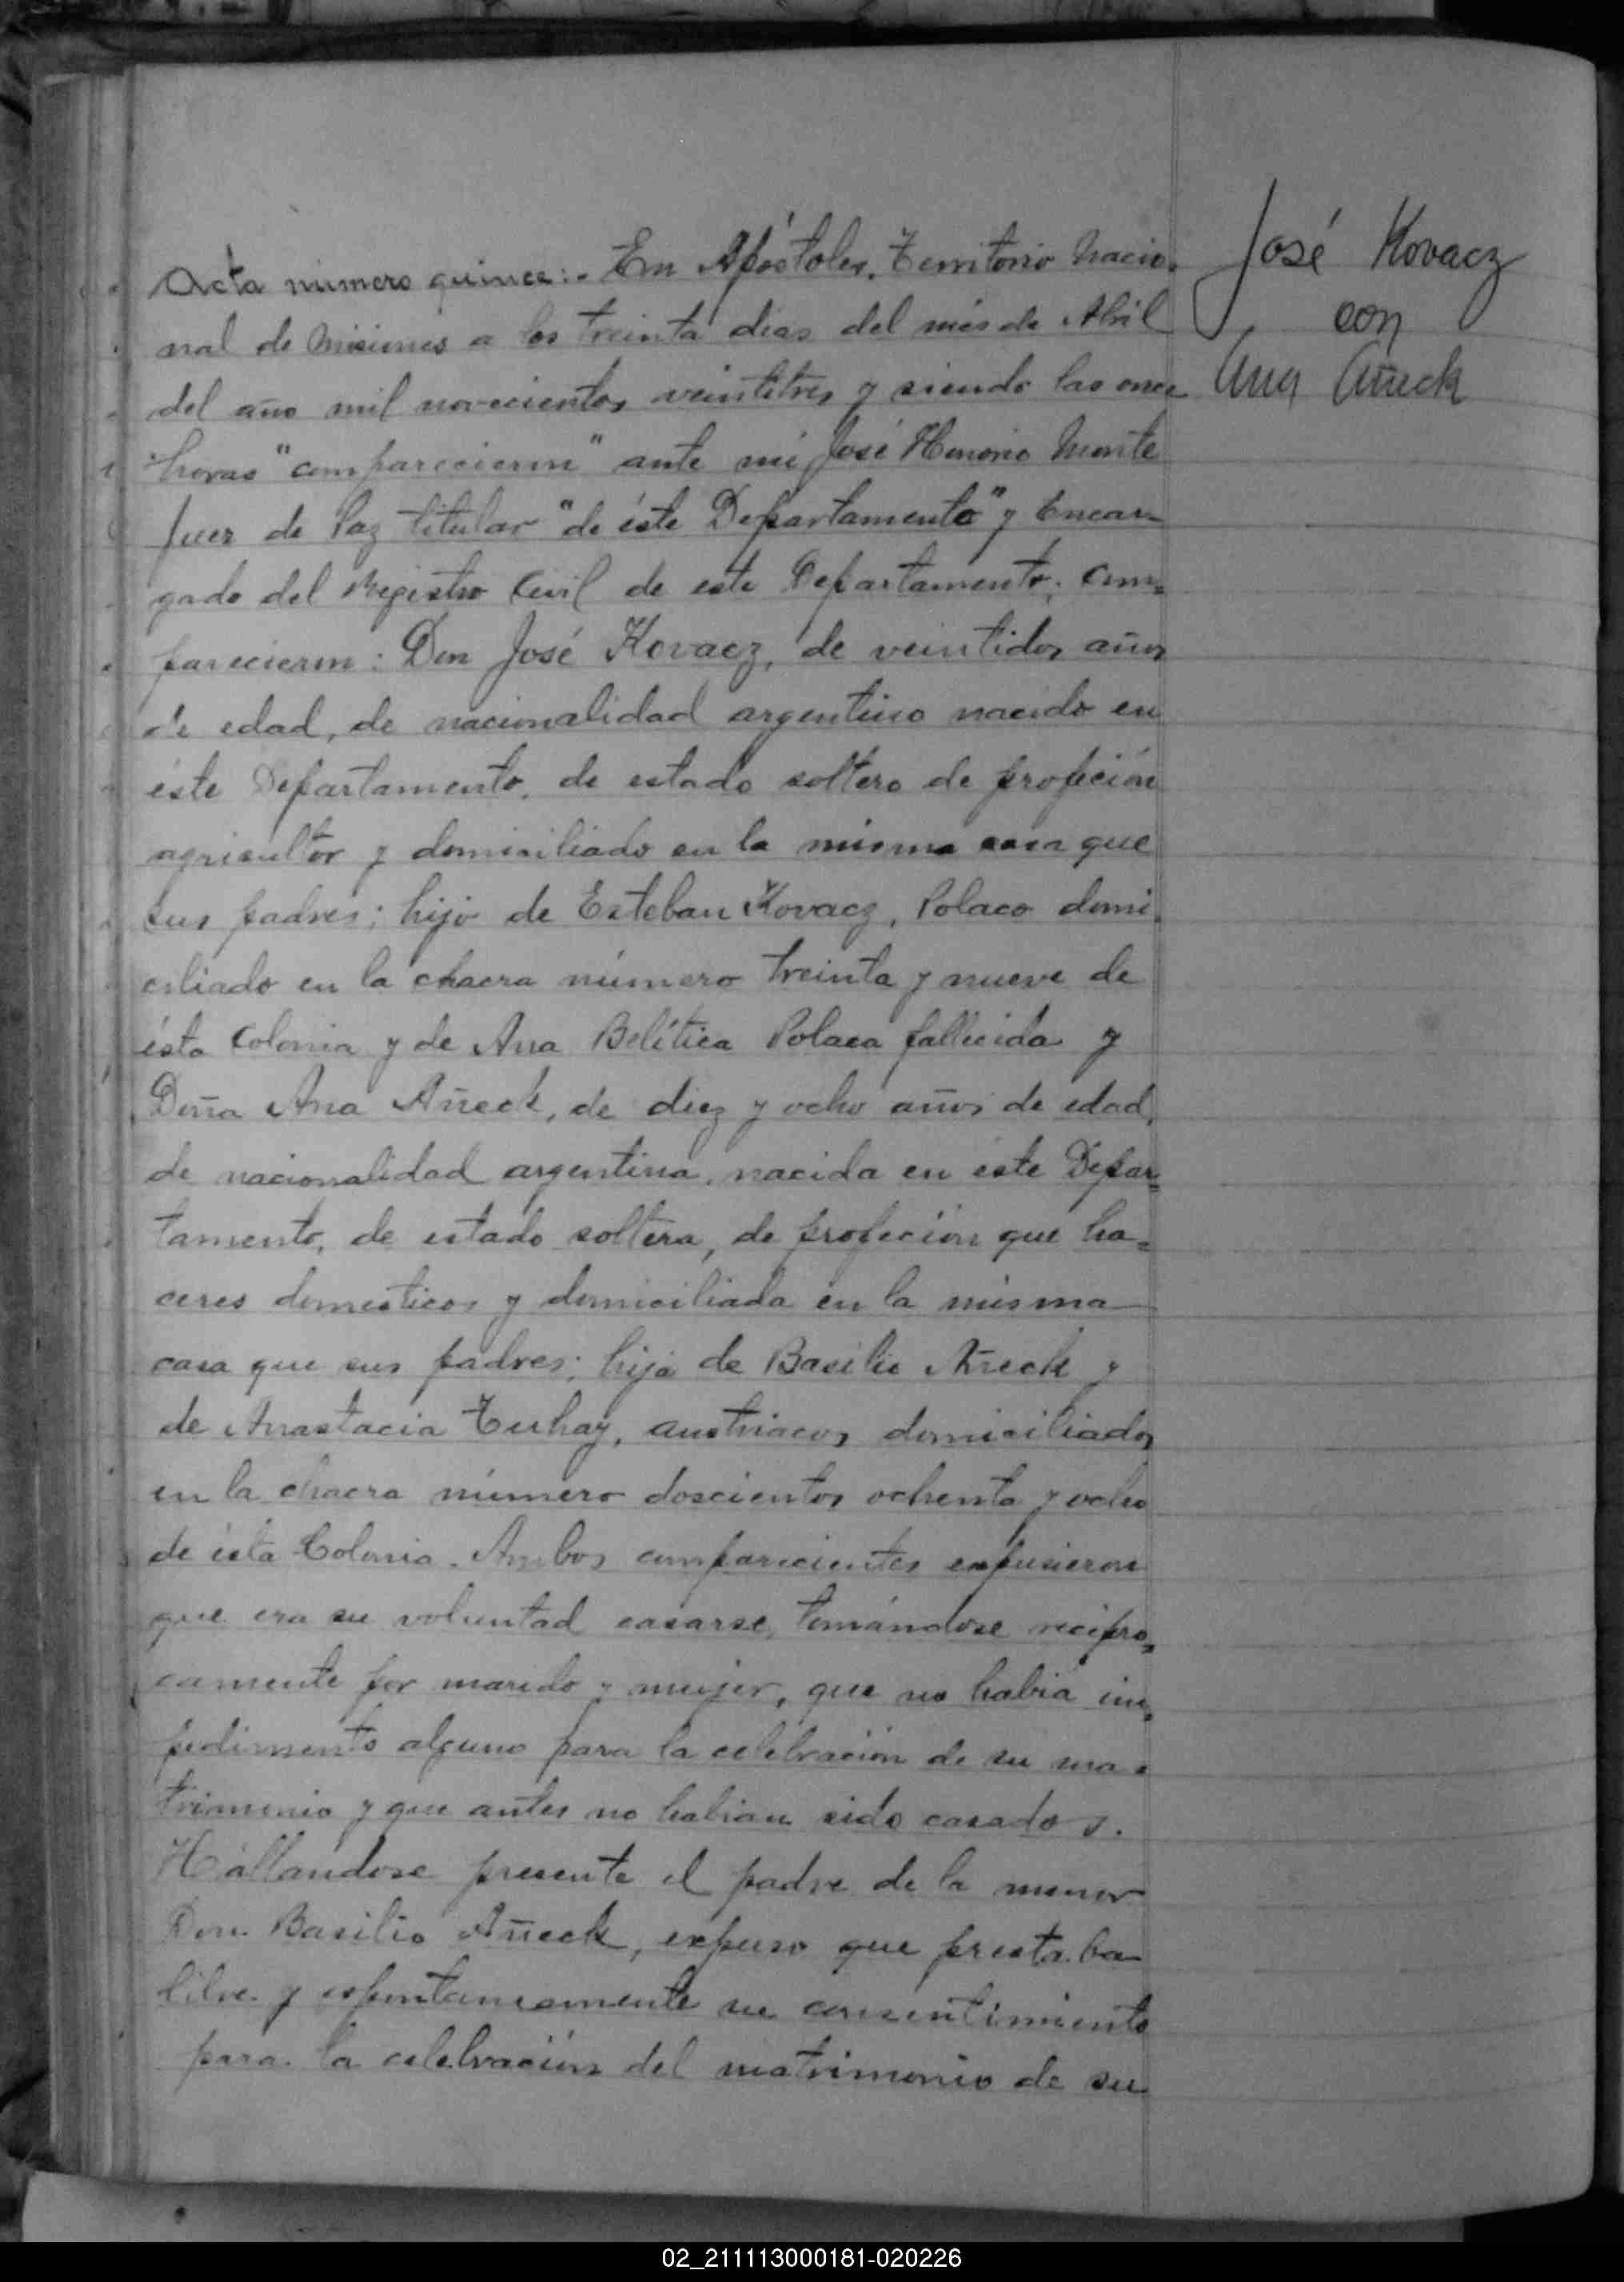 José Kovacz
con
Ana Añeck
Acta número quince:- En Apóstoles, Territorio Nacio-
nal de Misiones a los treinta dias del més de Abril
del año mil novecientos veintitres y siendo las once
horas "comparecieron" ante mi José Honorio Monte
Juez de Paz titular "de éste Departamento" y Encar-
gado del Registro Civil de este Departamento; com-
parecieron: Don José Kovacz, de veintidos años
de edad, de nacionalidad argentino nacido en
éste Departamento, de estado soltero de profeción
agricultor y domiciliado en la misma casa que
sus padres; hijo de Esteban Kovacz, Polaco domi-
ciliado en la chacra número treinta y nueve de
ésta Colonia y de Ana Belítica Polaca fallecida y
Doña Ana Añeck, de diez y ocho años de edad,
de nacionalidad argentina, nacida en éste Depar-
tamento, de estado soltera, de profeción que ha-
ceres domesticos y domiciliada en la misma
casa que sus padres; hija de Basilio Añeck y
de Anastacia Tuhay, austriacos domiciliados
en la chacra número doscientos ochenta y ocho
de ésta Colonia. Ambos comparecientes expusieron
que era su voluntad casarse, tomándose recipro-
camente por marido y mujer, que no habia im-
pedimento alguno para la celebración de su ma-
trimonio y que antes no habian sido casados.
Hállandose presente el padre de la menor
Don Basilio Añeck, expuso que prestaba
libre y espontaneamente su consentimiento
para la celebración del matrimonio de su
02_211113000181-020226